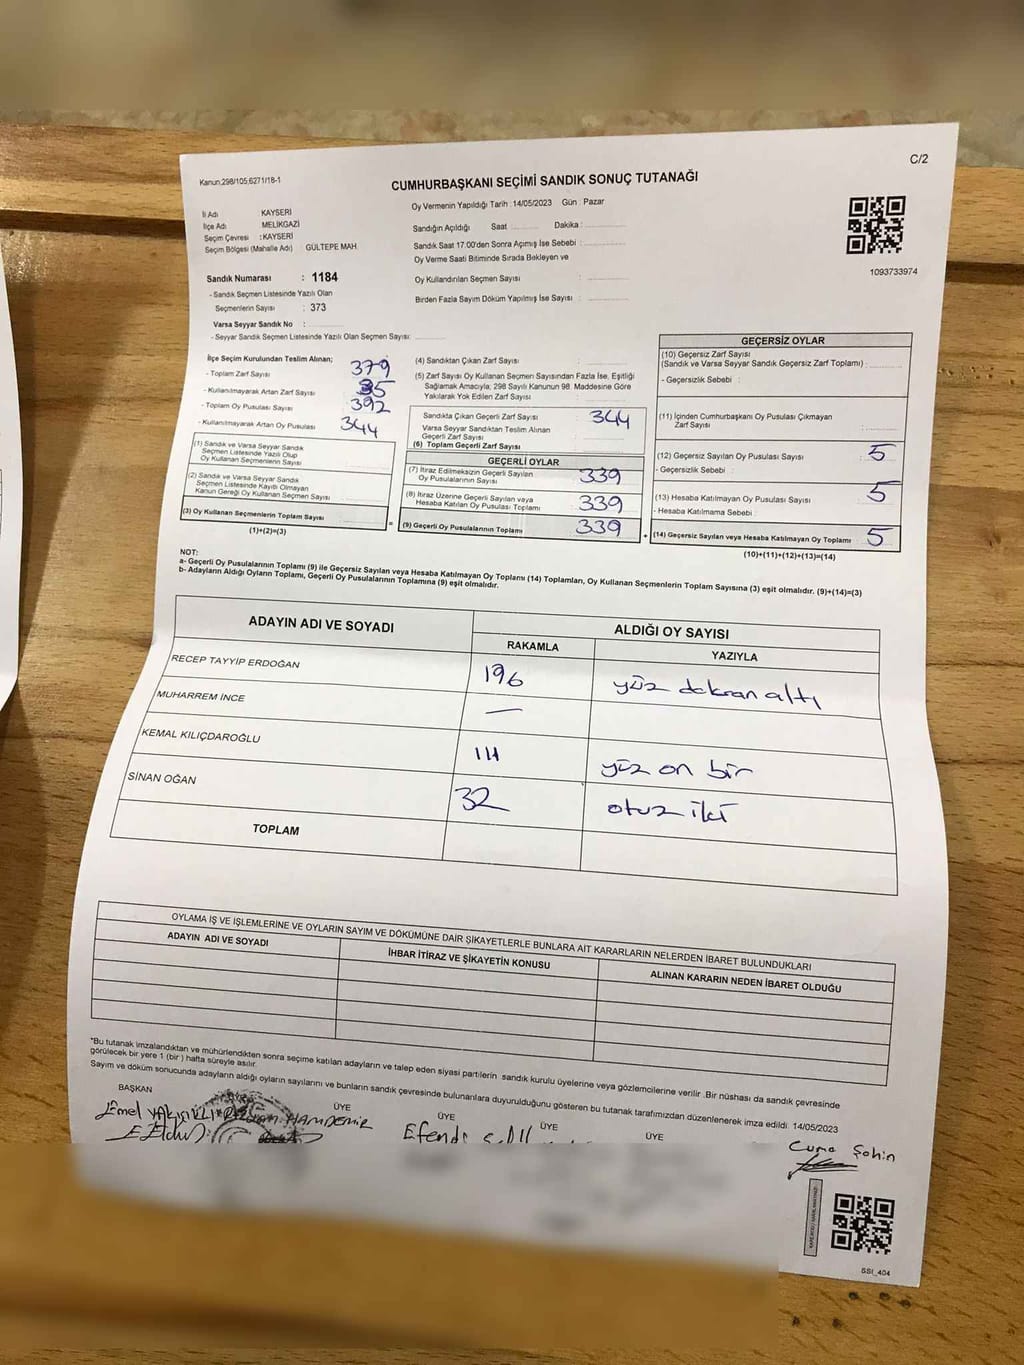 C/2
Kanun;298/105;6271/18-1
CUMHURBAŞKANI SEÇİMİ SANDIK SONUÇ TUTANAĞI
İl Adı KAYSERİ
İlçe Adı MELİKGAZİ
Seçim Çevresi : KAYSERİ
Seçim Bölgesi (Mahalle Adı) GÜLTEPE MAH.
Oy Vermenin Yapıldığı Tarih :14/05/2023 Gün : Pazar
Sandığın Açıldığı Saat Dakika :
Sandık Saat 17.00'den Sonra Açımış İse Sebebi :
Oy Verme Saati Bitiminde Sırada Bekleyen ve
Oy Kullandırılan Seçmen Sayısı :
Birden Fazla Sayım Döküm Yapılmış İse Sayısı :
1093733974
Sandık Numarası : 1184
- Sandık Seçmen Listesinde Yazılı Olan
Seçmenlerin Sayısı : 373
Varsa Seyyar Sandık No :
- Seyyar Sandık Seçmen Listesinde Yazılı Olan Seçmen Sayısı:
İlçe Seçim Kurulundan Teslim Alınan;
- Toplam Zarf Sayısı 379
- Kullanılmayarak Artan Zarf Sayısı 35
- Toplam Oy Pusulası Sayısı 392
- Kullanılmayarak Artan Oy Pusulası 344
(1) Sandık ve Varsa Seyyar Sandık
Seçmen Listesinde Yazılı Olup
Oy Kullanan Seçmenlerin Sayısı
(2) Sandık ve Varsa Seyyar Sandık
Seçmen Listesinde Kayıtlı Olmayan
Kanun Gereği Oy Kullanan Seçmen Sayısı
(3) Oy Kullanan Seçmenlerin Toplam Sayısı
(1)+(2)=(3)
=
(4) Sandıktan Çıkan Zarf Sayısı :
(5) Zarf Sayısı Oy Kullanan Seçmen Sayısından Fazla İse, Eşitliği
Sağlamak Amacıyla; 298 Sayılı Kanunun 98. Maddesine Göre
Yakılarak Yok Edilen Zarf Sayısı :
Sandıkta Çıkan Geçerli Zarf Sayısı 344
Varsa Seyyar Sandıktan Teslim Alınan
Geçerli Zarf Sayısı
(6) Toplam Geçerli Zarf Sayısı
GEÇERLİ OYLAR
(7) İtiraz Edilmeksizin Geçerli Sayılan
Oy Pusulalarının Sayısı 339
(8) İtiraz Üzerine Geçerli Sayılan veya
Hesaba Katılan Oy Pusulası Toplamı 339
(9) Geçerli Oy Pusulalarının Toplamı 339
+
GEÇERSİZ OYLAR
(10) Geçersiz Zarf Sayısı
(Sandık ve Varsa Seyyar Sandık Geçersiz Zarf Toplamı) :
- Geçersizlik Sebebi :
(11) İçinden Cumhurbaşkanı Oy Pusulası Çıkmayan
Zarf Sayısı :
(12) Geçersiz Sayılan Oy Pusulası Sayısı : 5
- Geçersizlik Sebebi :
(13) Hesaba Katılmayan Oy Pusulası Sayısı : 5
- Hesaba Katılmama Sebebi :
(14) Geçersiz Sayılan veya Hesaba Katılmayan Oy Toplamı : 5
(10)+(11)+(12)+(13)=(14)
NOT:
a- Geçerli Oy Pusulalarının Toplamı (9) ile Geçersiz Sayılan veya Hesaba Katılmayan Oy Toplamı (14) Toplamları, Oy Kullanan Seçmenlerin Toplam Sayısına (3) eşit olmalıdır. (9)+(14)=(3)
b- Adayların Aldığı Oyların Toplamı, Geçerli Oy Pusulalarının Toplamına (9) eşit olmalıdır.
ADAYIN ADI VE SOYADI ALDIĞI OY SAYISI
RAKAMLA YAZIYLA
RECEP TAYYİP ERDOĞAN 196 yüz doksan altı
MUHARREM İNCE —
KEMAL KILIÇDAROĞLU 111 yüz on bir
SİNAN OĞAN 32 otuz iki
TOPLAM
OYLAMA İŞ VE İŞLEMLERİNE VE OYLARIN SAYIM VE DÖKÜMÜNE DAİR ŞİKAYETLERLE BUNLARA AİT KARARLARIN NELERDEN İBARET BULUNDUKLARI
ADAYIN ADI VE SOYADI İHBAR İTİRAZ VE ŞİKAYETİN KONUSU ALINAN KARARIN NEDEN İBARET OLDUĞU
"Bu tutanak imzalandıktan ve mühürlendikten sonra seçime katılan adayların ve talep eden siyasi partilerin sandık kurulu üyelerine veya gözlemcilerine verilir .Bir nüshası da sandık çevresinde
görülecek bir yere 1 (bir ) hafta süreyle asılır.
Sayım ve döküm sonucunda adayların aldığı oyların sayılarını ve bunların sandık çevresinde bulunanlara duyurulduğunu gösteren bu tutanak tarafımızdan düzenlenerek imza edildi. 14/05/2023
BAŞKAN ÜYE ÜYE ÜYE ÜYE
Emel HAMDEMİR Efendi Cuma Şahin
SSI_404